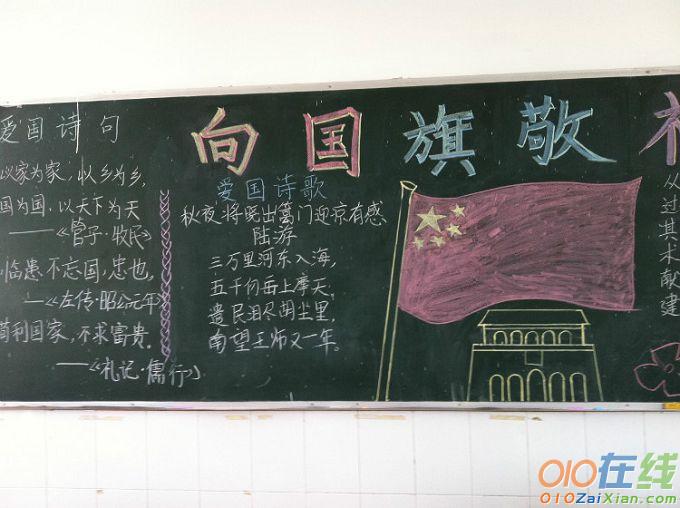 向国旗敬
爱国诗句
以家为家,以乡为乡,
国为国,以天下为天
——《管子·牧民》
临患不忘国,忠也,
——《左传·昭公元年》
苟利国家,不求富贵.
——《礼记·儒行》
爱国诗歌
秋夜将晓出篱门迎京有感
陆游
三万里河东入海,
五千仞岳上摩天.
遗民泪尽胡尘里,
南望王师又一年。
从
过
其
献
建
010在线
010ZaiXian.com